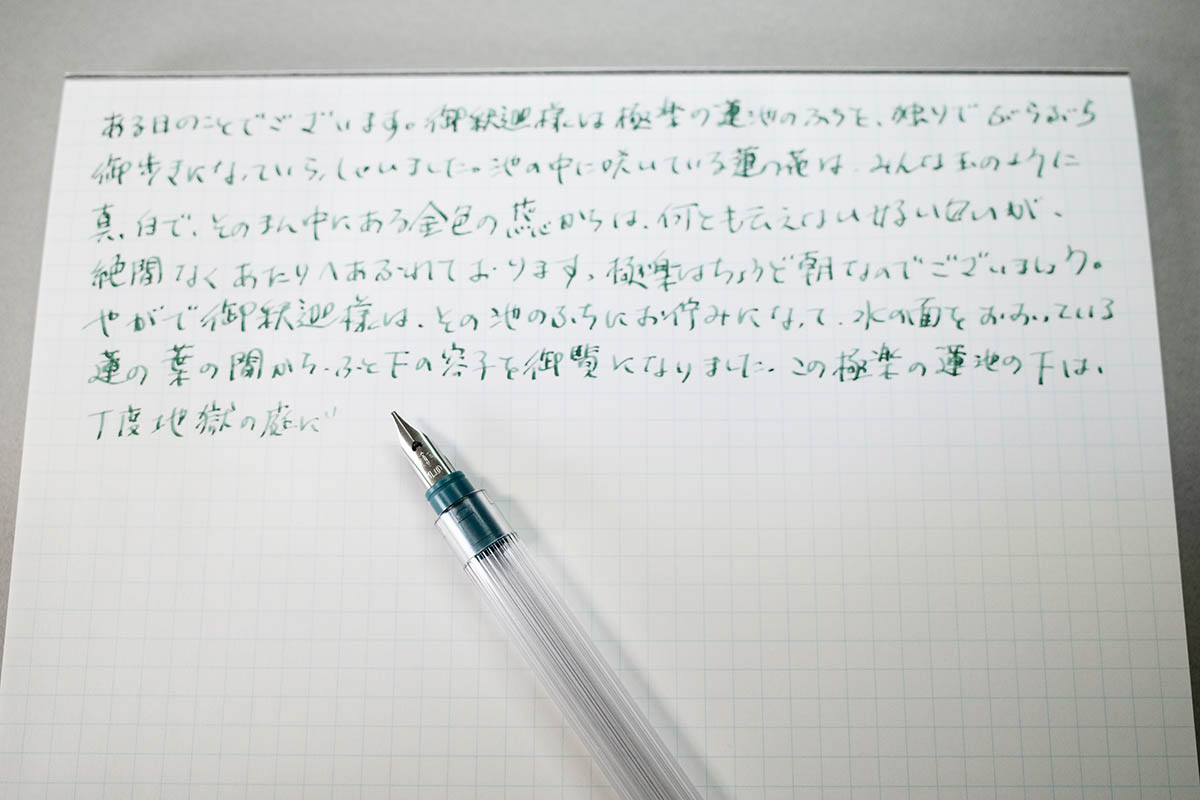 ある日のことでございます。御釈迦様は極楽の蓮池のふちを、独りでぶらぶら
御歩きになっていらっしゃいました。池の中に咲いている蓮の花は、みんな玉のように
真っ白で、そのまん中にある金色の蕊からは、何とも云えない好い匂いが、
絶間なくあたりへあふれております。極楽はちょうど朝なのでございましょう。
やがて御釈迦様は、その池のふちにお佇みになって、水の面をおおっている
蓮の葉の間から、ふと下の容子を御覧になりました。この極楽の蓮池の下は、
丁度地獄の底に